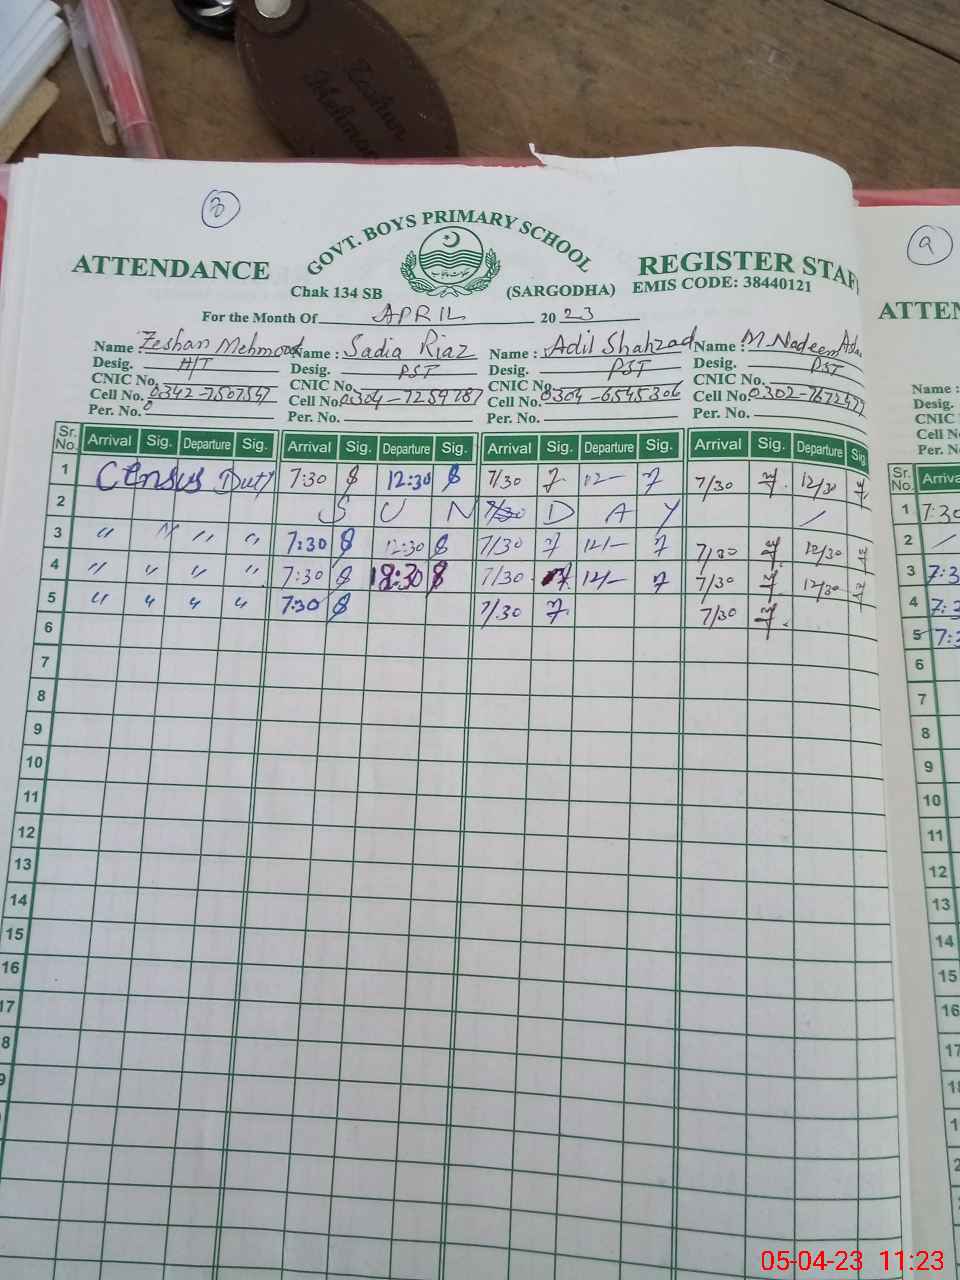 Zeshan
Mehmood
8
9
GOVT. BOYS PRIMARY SCHOOL
ATTENDANCE
REGISTER STAF
ATTEN
Chak 134 SB (SARGODHA) EMIS CODE: 38440121
For the Month Of APRIL 20 23
Name : Zeshan Mehmood Name : Sadia Riaz Name : Adil Shahzad Name : M. Nadeem
Desig. H/T Desig. PST Desig. PST Desig. PST
CNIC No. CNIC No. CNIC No. CNIC No.
Cell No. 0342-7507547 Cell No. 0304-7259787 Cell No. 0304-6545306 Cell No.
Per. No. Per. No. Per. No. Per. No.
Name :
Desig.
CNIC
Cell N
Per. N
Sr. No. Arrival Sig. Departure Sig. Arrival Sig. Departure Sig. Arrival Sig. Departure Sig. Arrival Sig. Departure Sig
Sr. No. Arriva
1 Census Duty 7:30 12:30 7/30 12/- 7/30 12/30
2 S U N 7/30 D A Y
3 " " " " 7:30 12:30 7/30 12/- 7/30 12/30
4 " " " " 7:30 12:30 7/30 12/- 7/30 12/30
5 " " " " 7:30 7/30 7/30
6
7
8
9
10
11
12
13
14
15
16
17
8
9
1 7:30
2
3 7:3
4 7:3
5 7:3
6
7
8
9
10
11
12
13
14
15
16
17
1
05-04-23 11:23